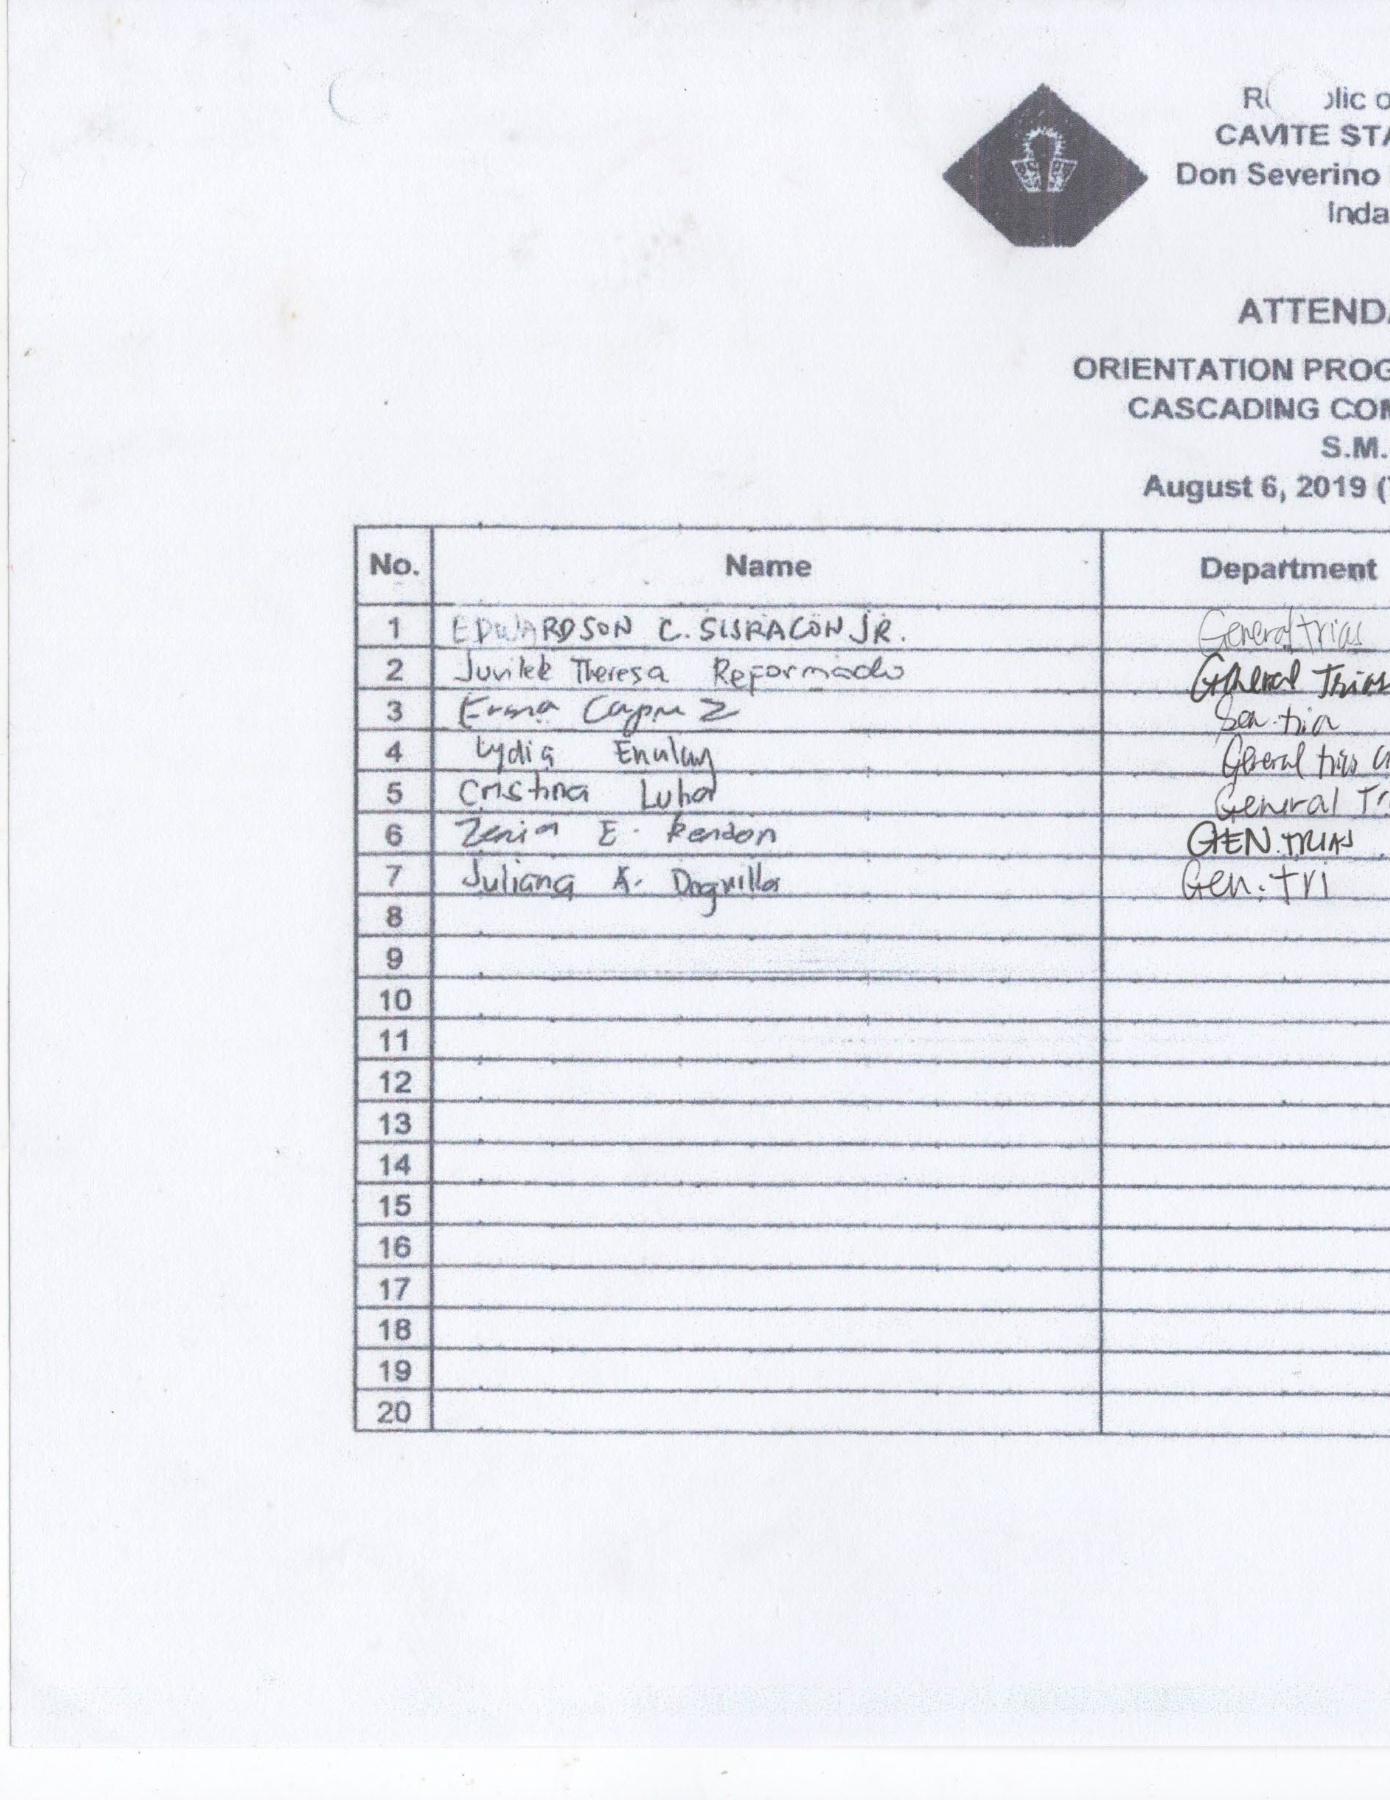 R( )lic o
CAVITE STA
Don Severino
Inda
ATTENDA
ORIENTATION PROG
CASCADING COM
S.M.
August 6, 2019 (T
No. Name Department
1 EDWARDSON C. SISRACON JR. General trias
2 Theresa Reformado General Trias
3 Erma Capuz Gen. tria
4 Lydia Enulay General trias
5 Cristina Luha General Tr
6 Zenia E. Rendon GEN. TRIAS
7 Juliana A. Daguilla Gen. tri
8
9
10
11
12
13
14
15
16
17
18
19
20